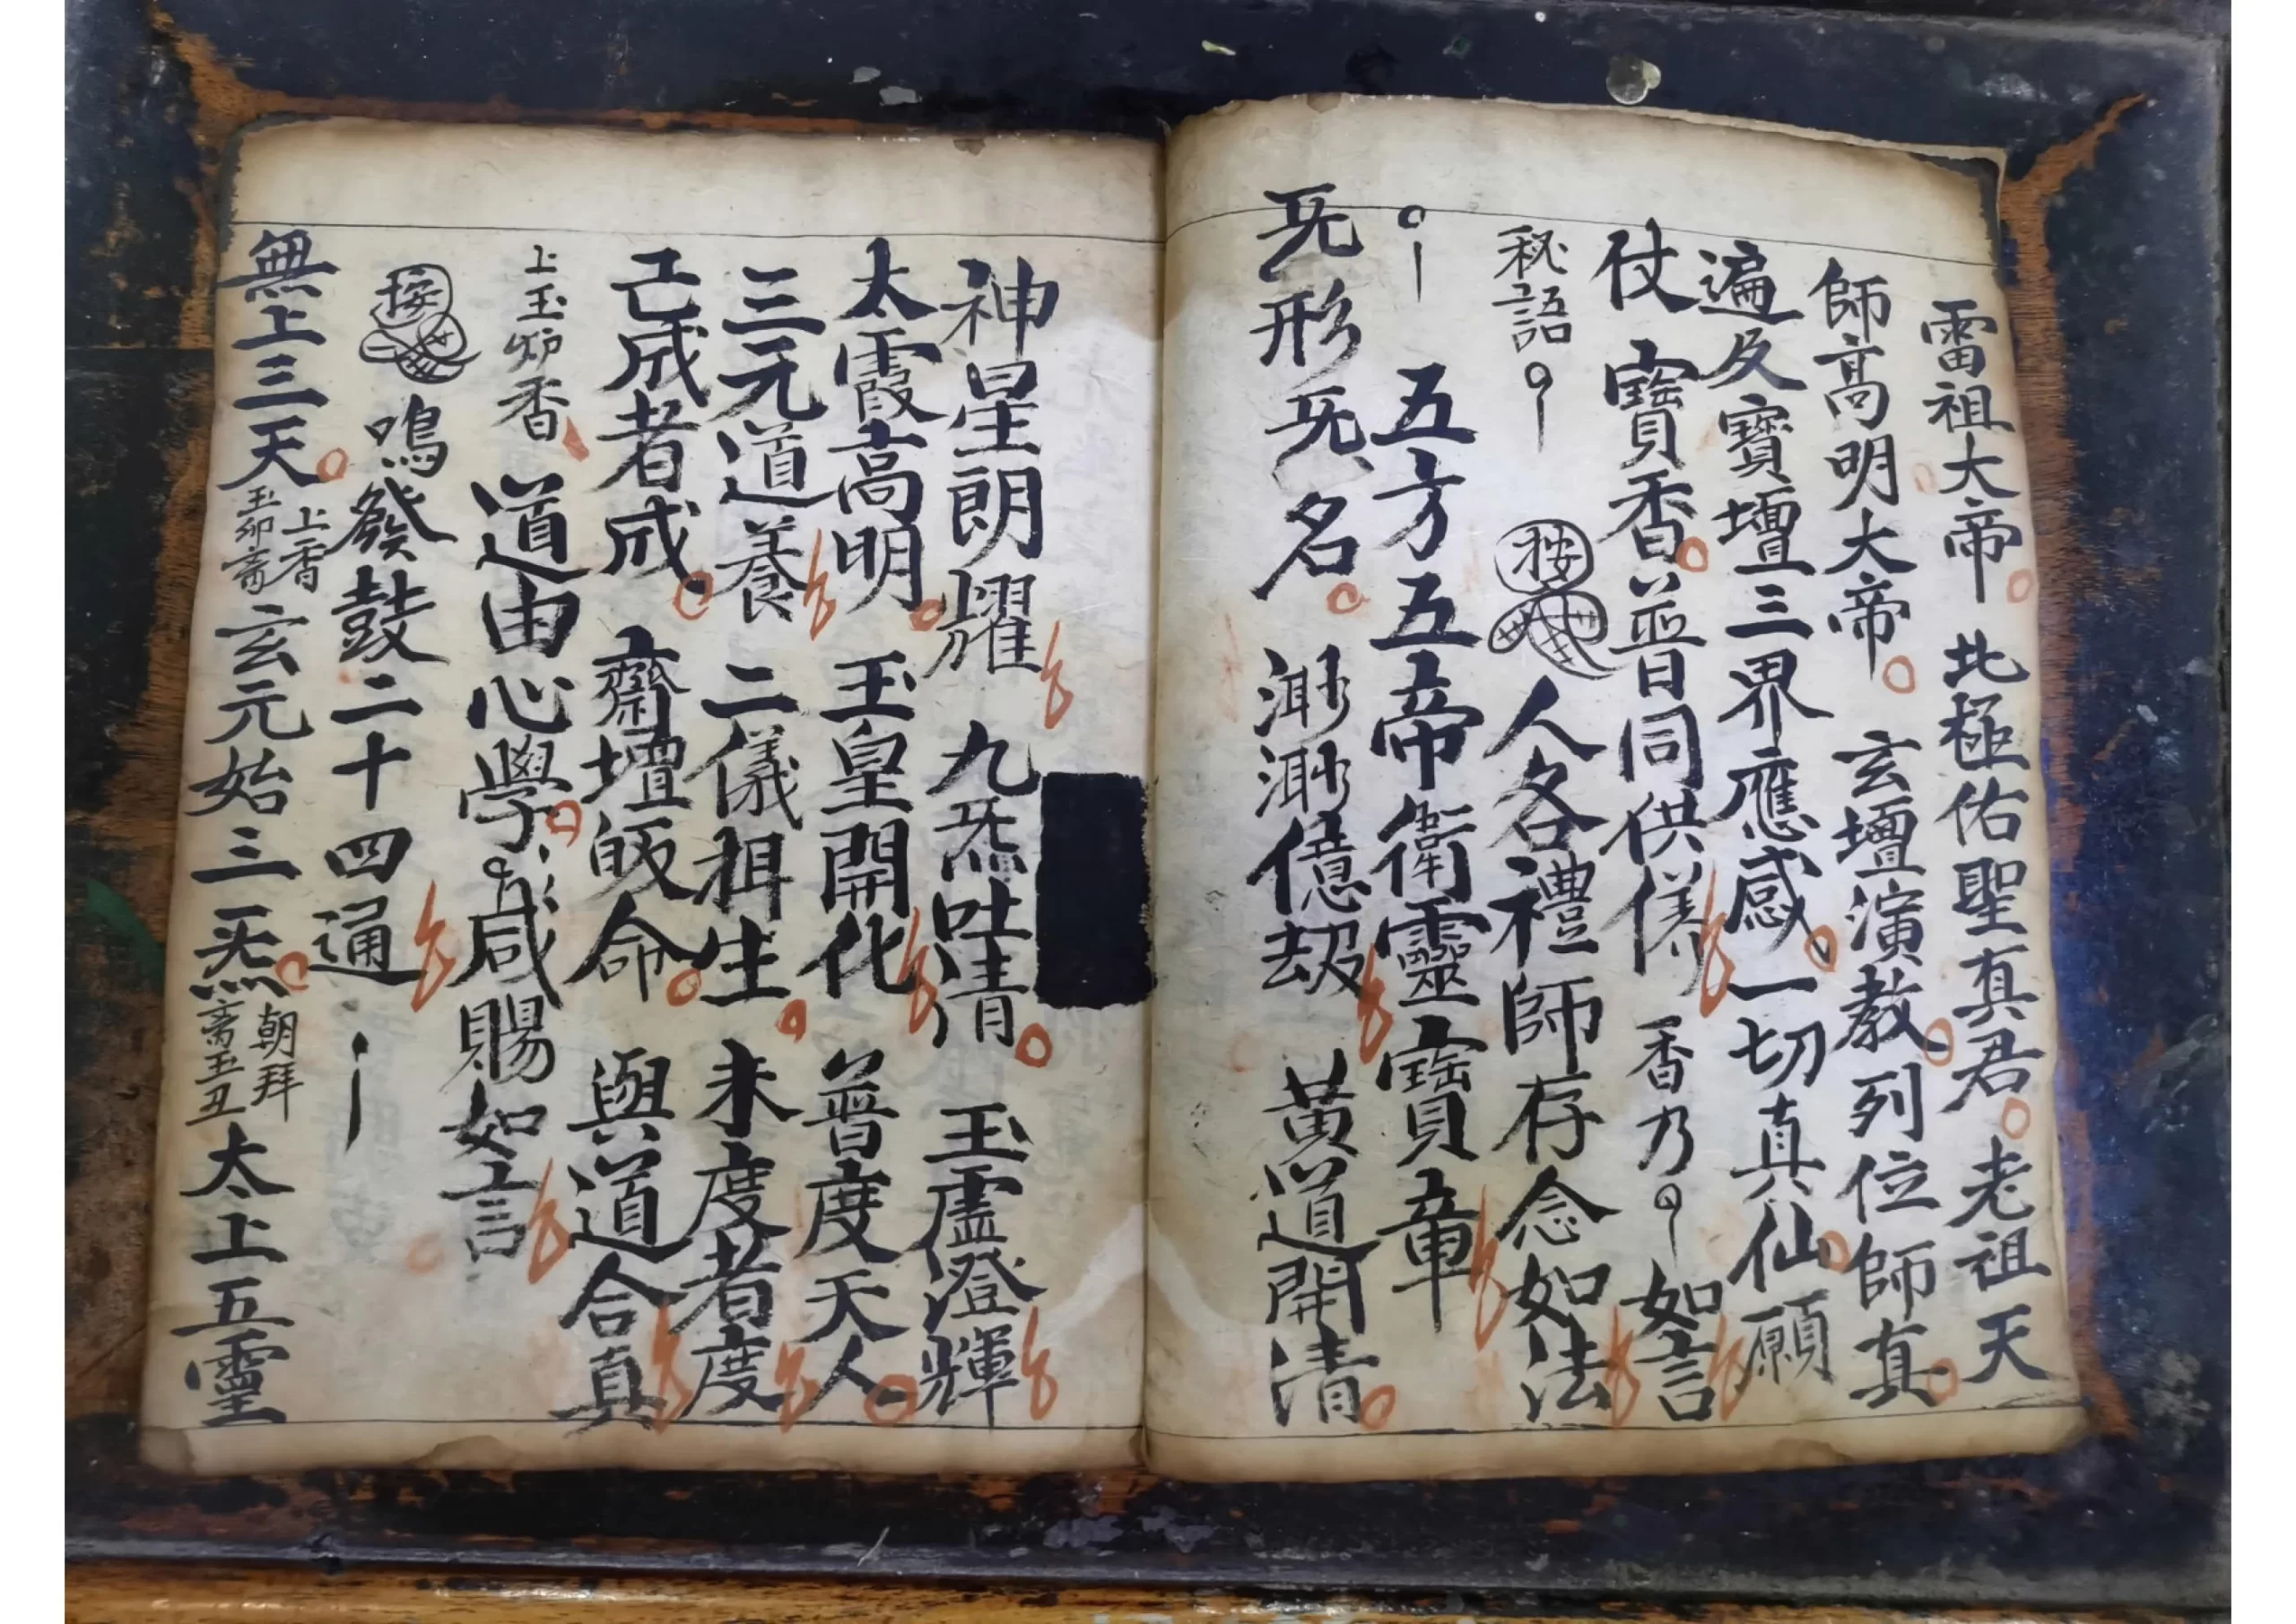 雷祖大帝 北極佑聖真君 老祖天
師高明大帝 玄壇演教 列位師真
遍及寶壇三界應感 一切真仙 願
仗 寶香 普同供養 香乃 如言
秘語 按 人各禮師存念如法
五方五帝衛靈寶章
旡形旡名 渺渺億劫 黃道開清
神星朗耀 九炁吐清 玉虛澄輝
太霞高明 玉皇開化 普度天人
三元道養 二儀 生 未度者度
成者成 齋壇 命 與道合真
上玉炉香 道由心學 咸賜如言
按 鳴發鼓二十四通
無上三天 上香 玉卯齋 玄元始三炁 朝拜 齋玉丑 太上五靈